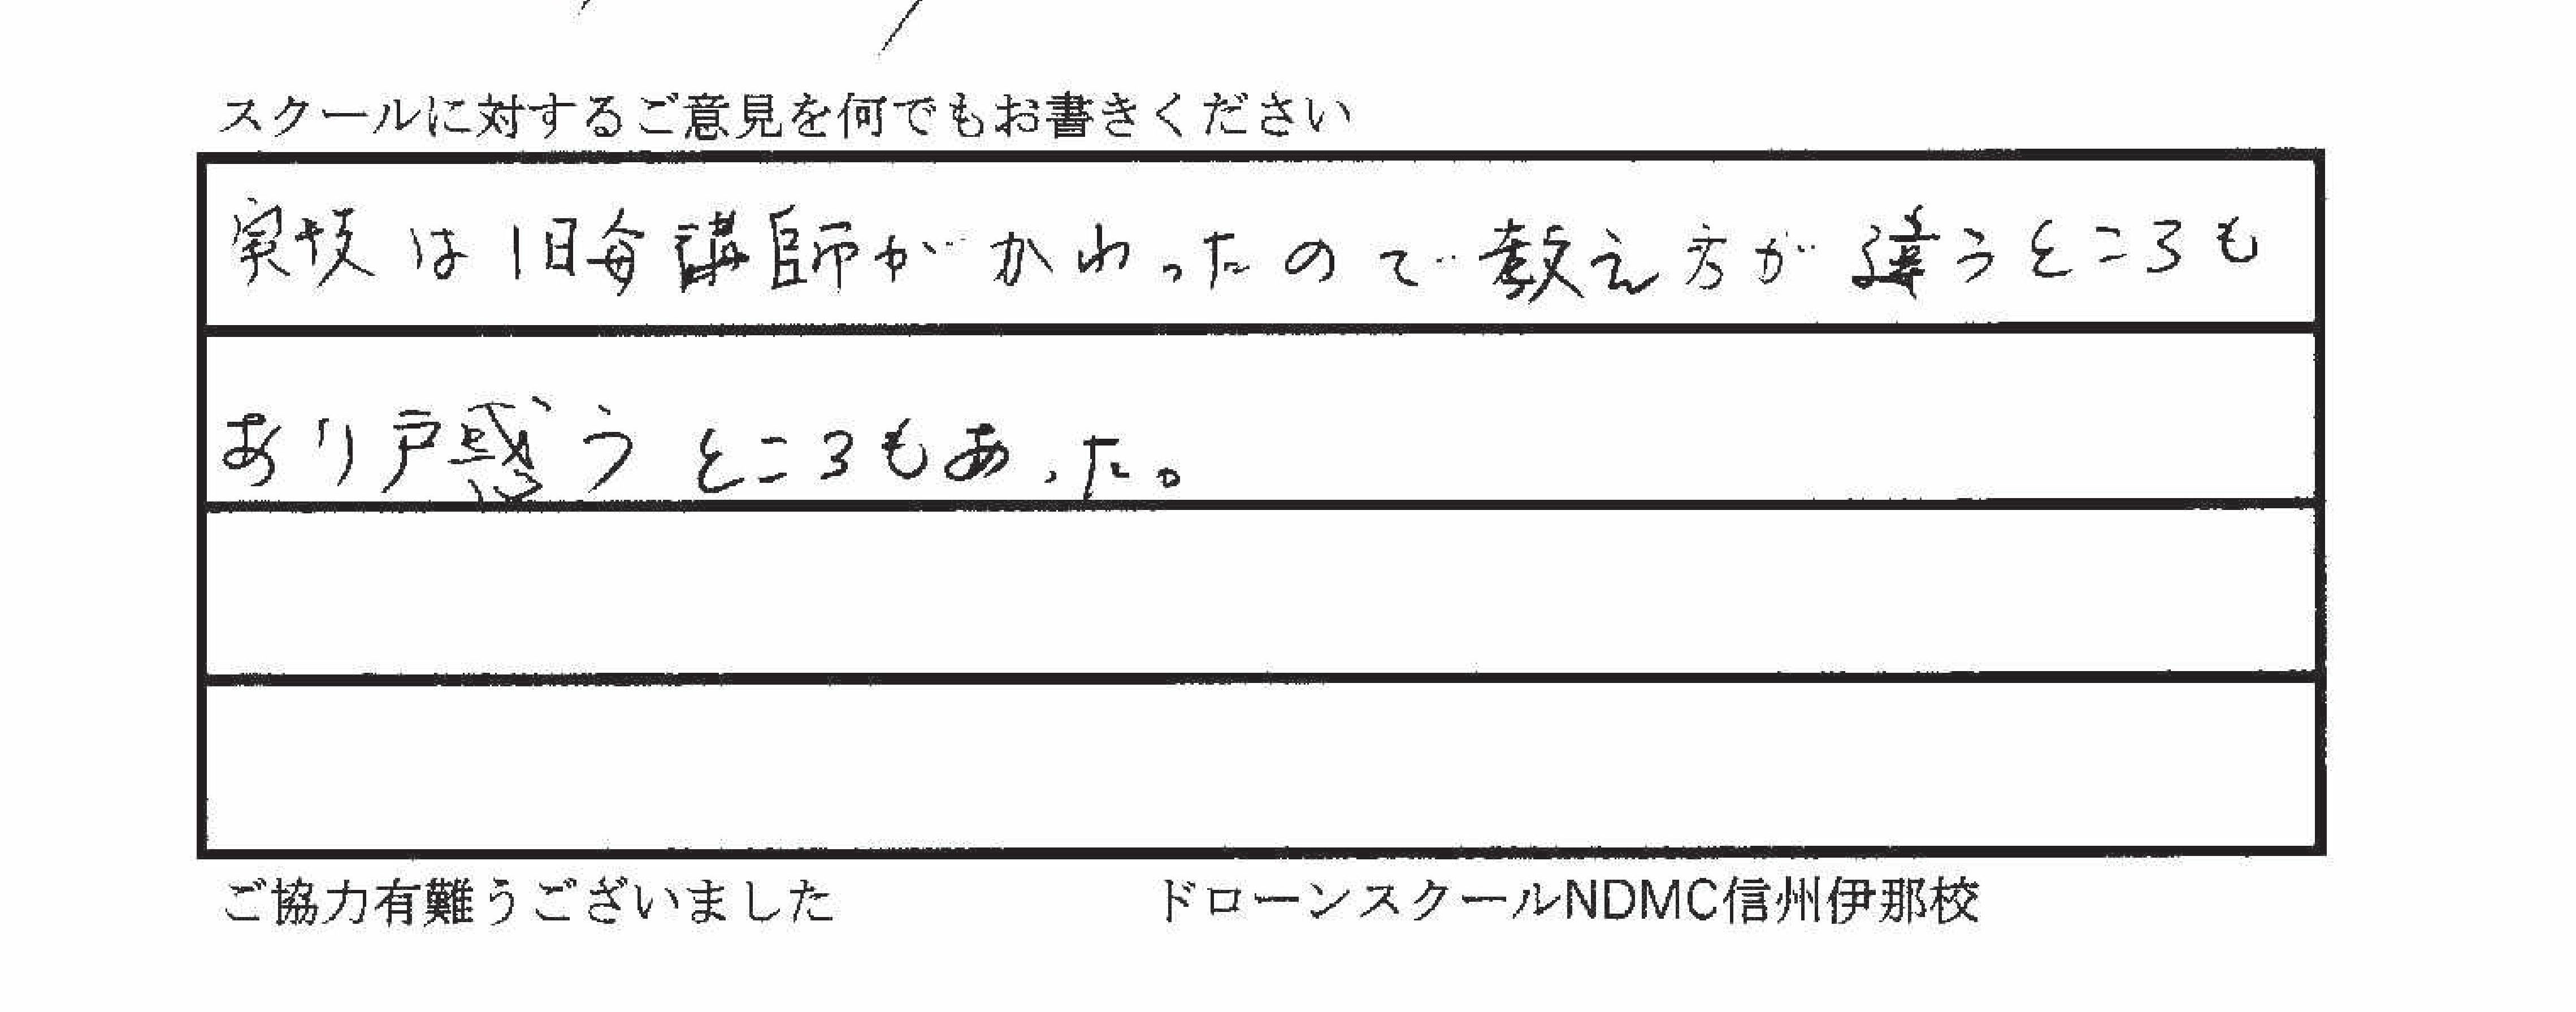 スクールに対するご意見を何でもお書きください
実技は1日毎講師がかわったので教え方が違うところも
あり戸惑うところもあった。
ご協力有難うございました
ドローンスクールNDMC信州伊那校